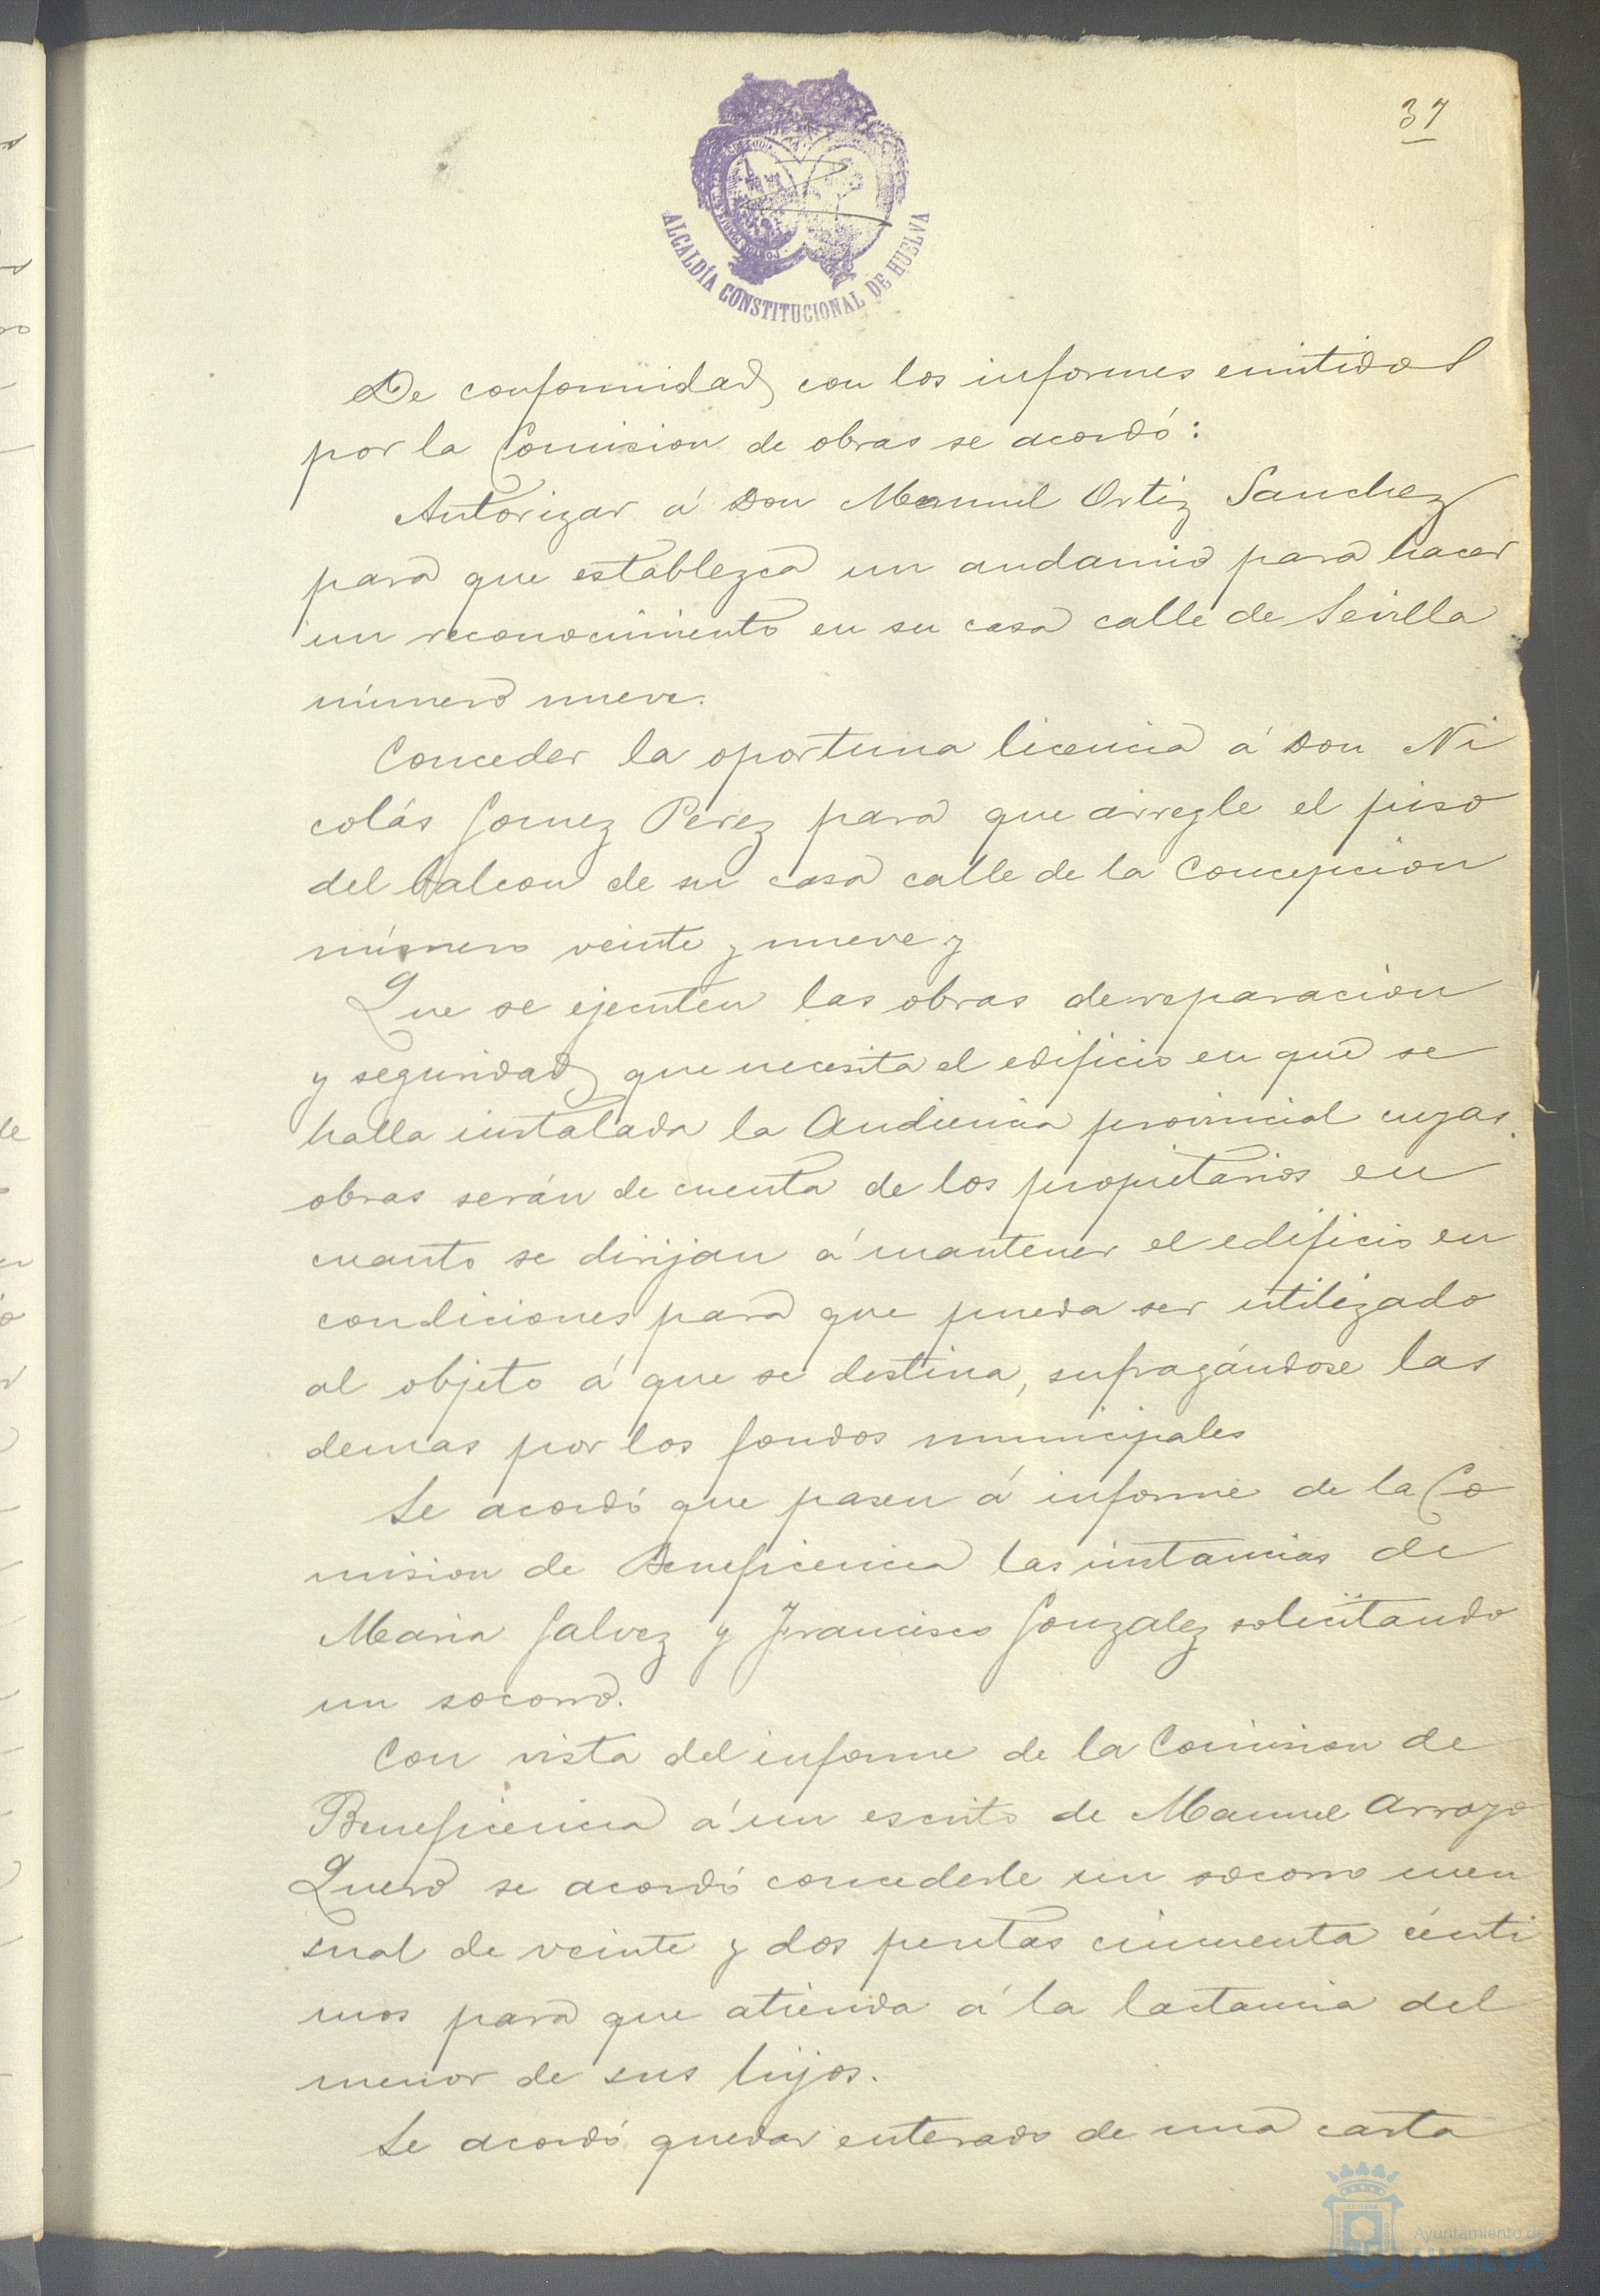 37
ALCALDÍA CONSTITUCIONAL DE HUELVA
De conformidad con los informes emitidos
por la Comision de obras se acordó:
Autorizar á Don Manuel Ortiz Sanchez
para que establezca un andamio para hacer
un reconocimiento en su casa calle de Sevilla
número nueve.
Conceder la oportuna licencia á Don Ni
colás Gomez Perez para que arregle el piso
del balcon de su casa calle de la Concepcion
número veinte y nueve y
Que se ejecuten las obras de reparacion
y seguridad que necesita el edificio en que se
halla instalada la Audiencia provincial cuyas
obras serán de cuenta de los propietarios en
cuanto se dirijan á mantener el edificio en
condiciones para que pueda ser utilizado
al objeto á que se destina, sufragándose las
demas por los fondos municipales
Se acordó que pasen á informe de la Co
mision de Beneficencia las instancias de
Maria Galvez y Francisco Gonzalez solicitando
un socorro.
Con vista del informe de la Comision de
Beneficencia á un escrito de Manuel Arroyo
Quero se acordó concederle un socorro men
sual de veinte y dos pesetas cincuenta cénti
mos para que atienda á la lactancia del
menor de sus hijos.
Se acordó quedar enterado de una carta
Ayuntamiento de
HUELVA